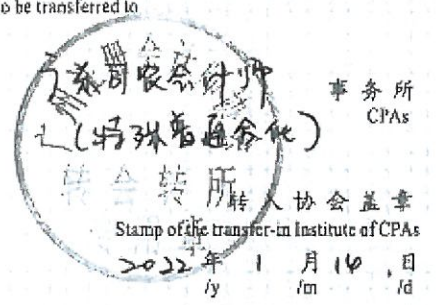 o be transferred to
广东司农会计师
事务所
CPAs
(特殊普通合伙)
转会转所
转入协会盖章
Stamp of the transfer-in Institute of CPAs
2022年 1 月 14 日
/y /m /d